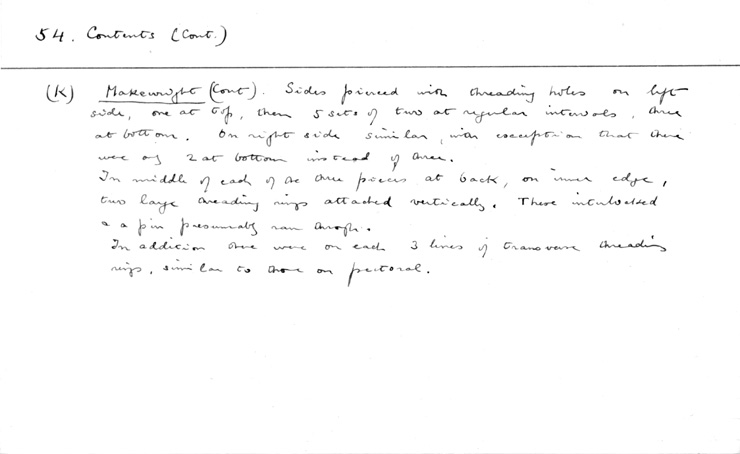 54. Contents (Cont.)
(K) Makeweight (Cont). Sides pierced with threading holes on left
side, one at top, then 5 sets of two at regular intervals, three
at bottom. On right side similar, with exception that there
were only 2 at bottom instead of three.
In middle of each of the three pieces at back, on inner edge,
two large threading rings attached vertically. These interlocked
& a pin presumably ran through.
In addition there were on each 3 lines of transverse threading
rings, similar to those on pectoral.